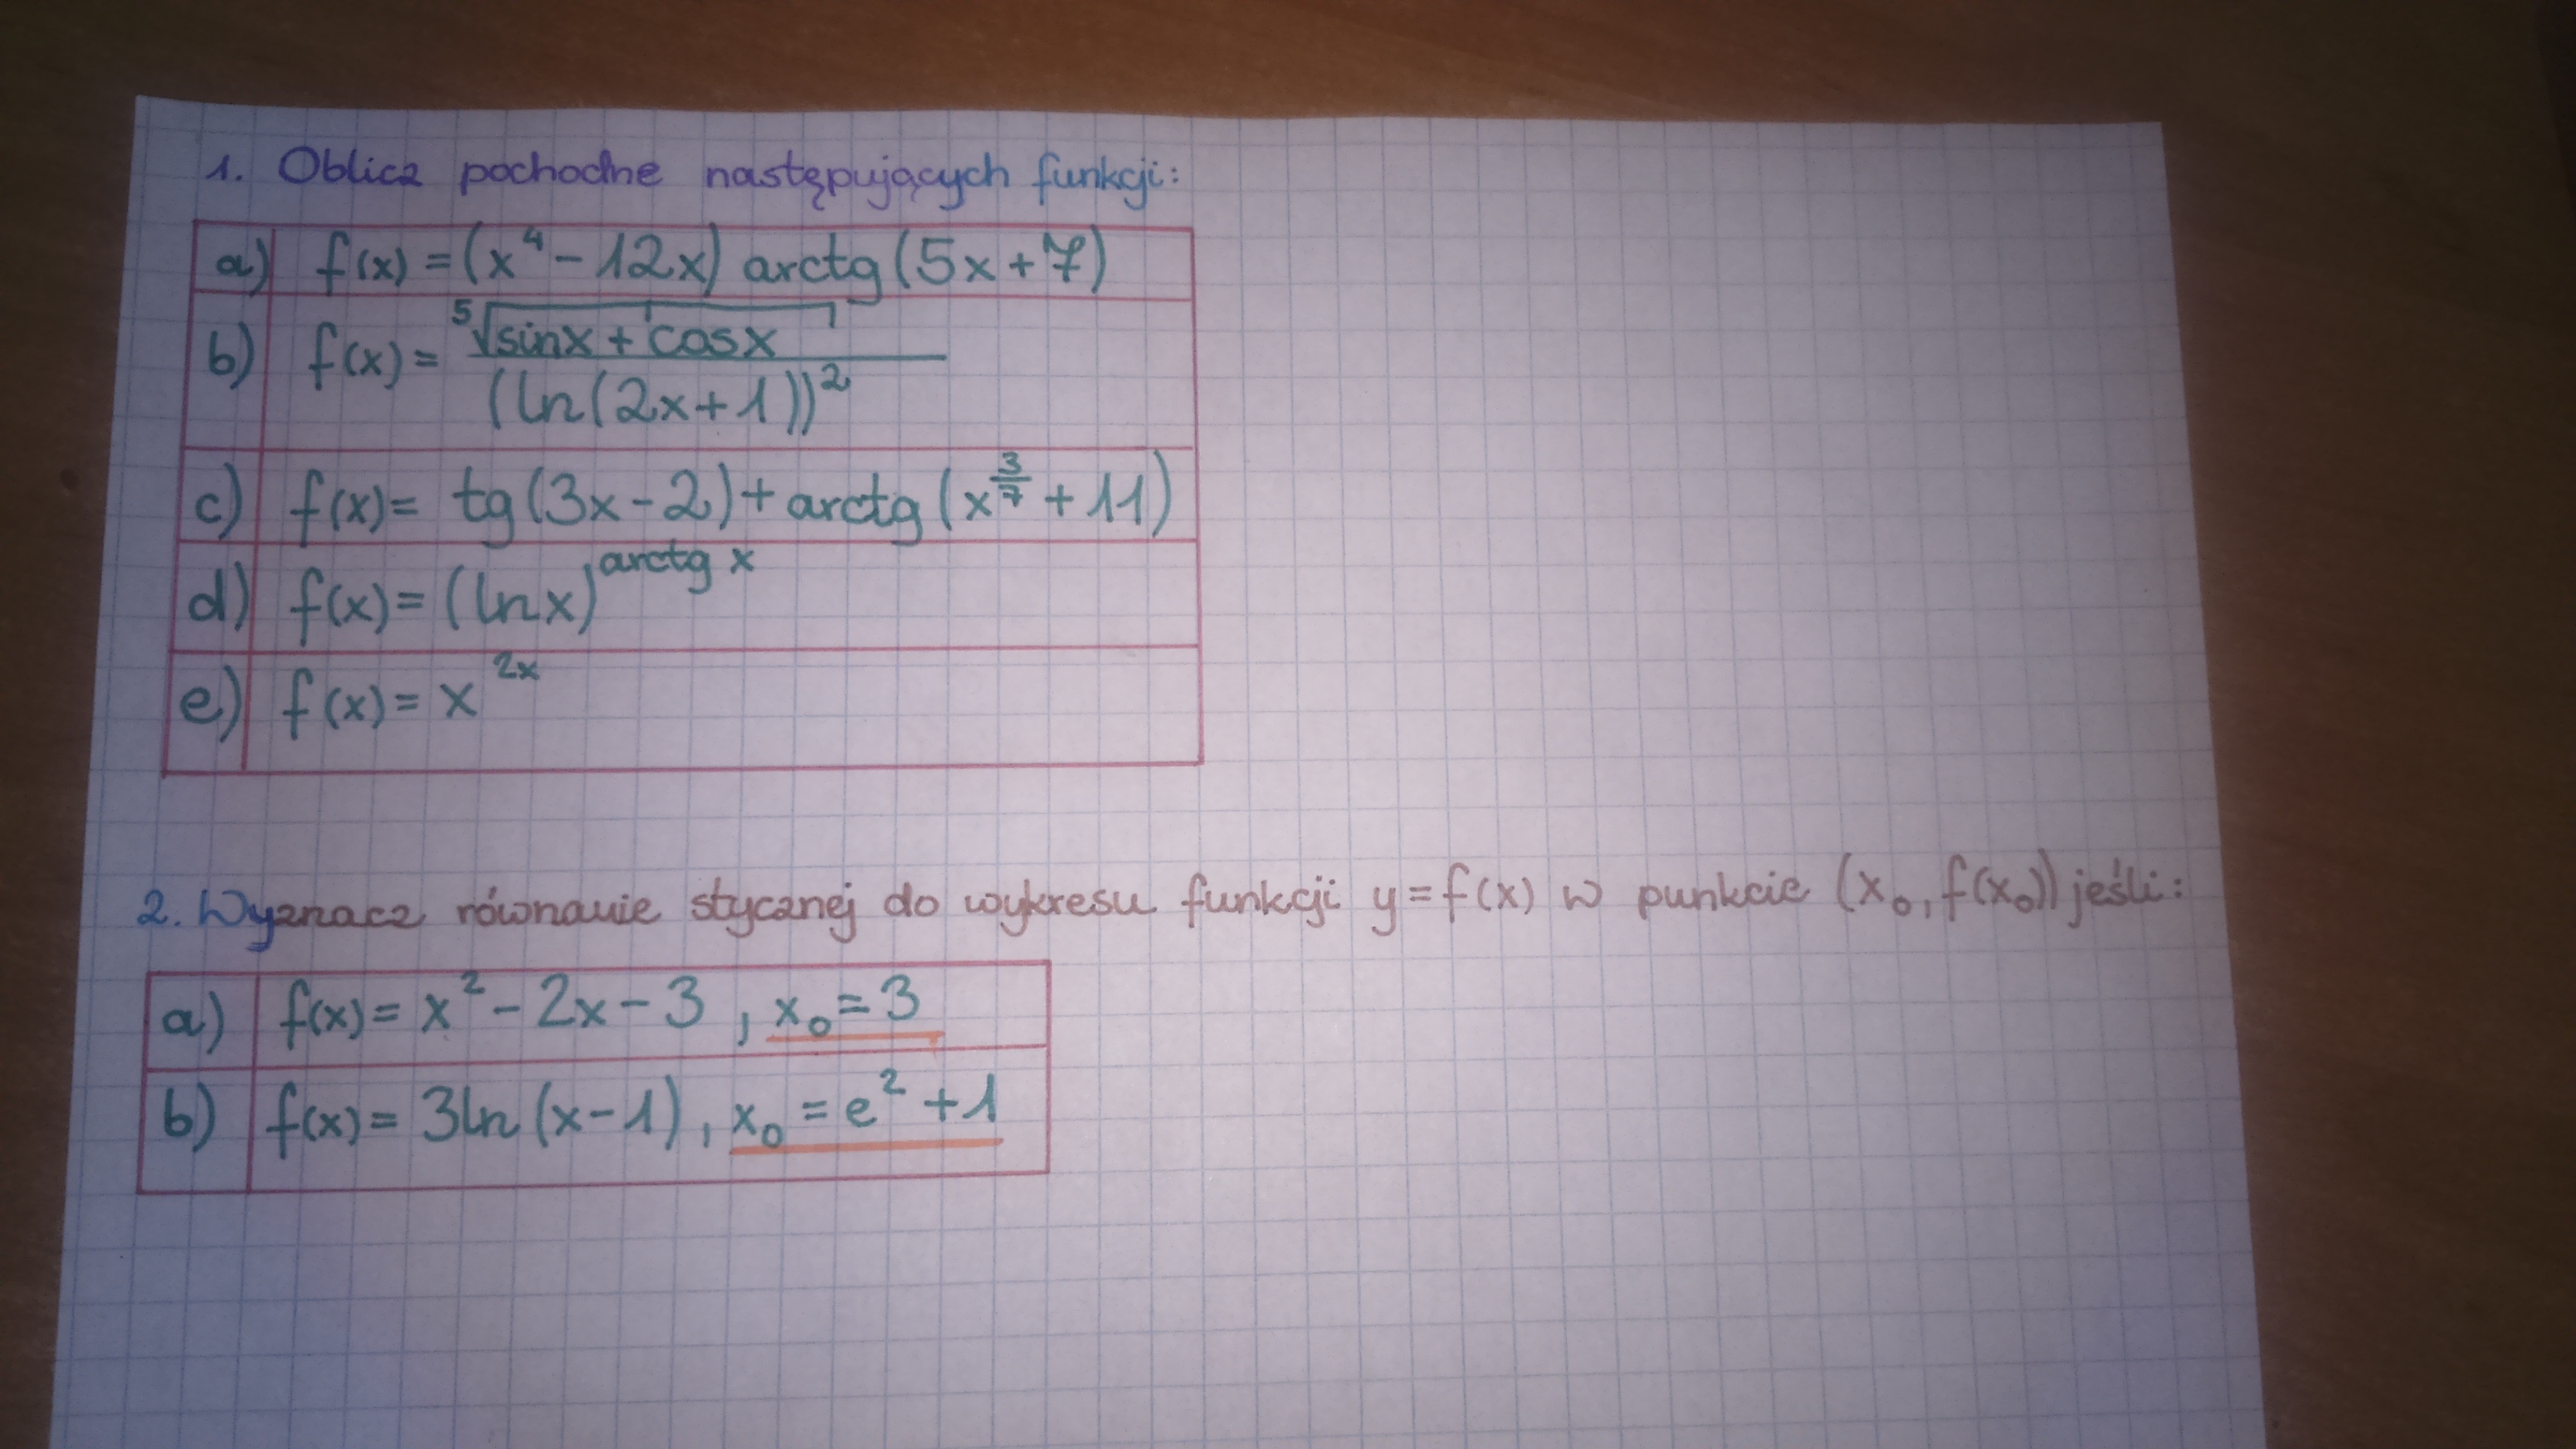 1. Oblicz pochodne następujących funkcji:
a) f(x) = (x⁴ - 12x) arctg (5x + 7)
b) f(x) = ⁵√(sinx + cosx) / (ln(2x+1))²
c) f(x) = tg(3x-2) + arctg (x^(3/7) + 11)
d) f(x) = (lnx)^(arctg x)
e) f(x) = x^(2x)
2. Wyznacz równanie stycznej do wykresu funkcji y=f(x) w punkcie (x₀, f(x₀)) jeśli:
a) f(x) = x² - 2x - 3 , x₀ = 3
b) f(x) = 3ln (x-1), x₀ = e² + 1